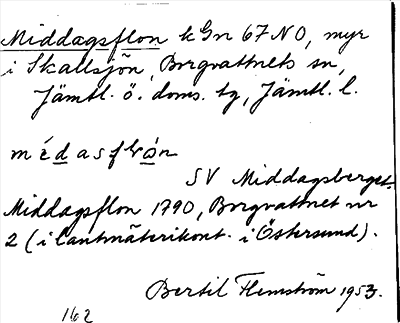 Middagsflon k Gn 67 NO, myr
i Skallsjön, Borgvattnets sn,
Jämtl. ö. doms. tg, Jämtl. l.
médasflòn
SV Middagsberget.
Middagsflon 1790, Borgvattnet nr
2 (i lantmäterikont. i Östersund).
Bertil Flemström 1953.
162